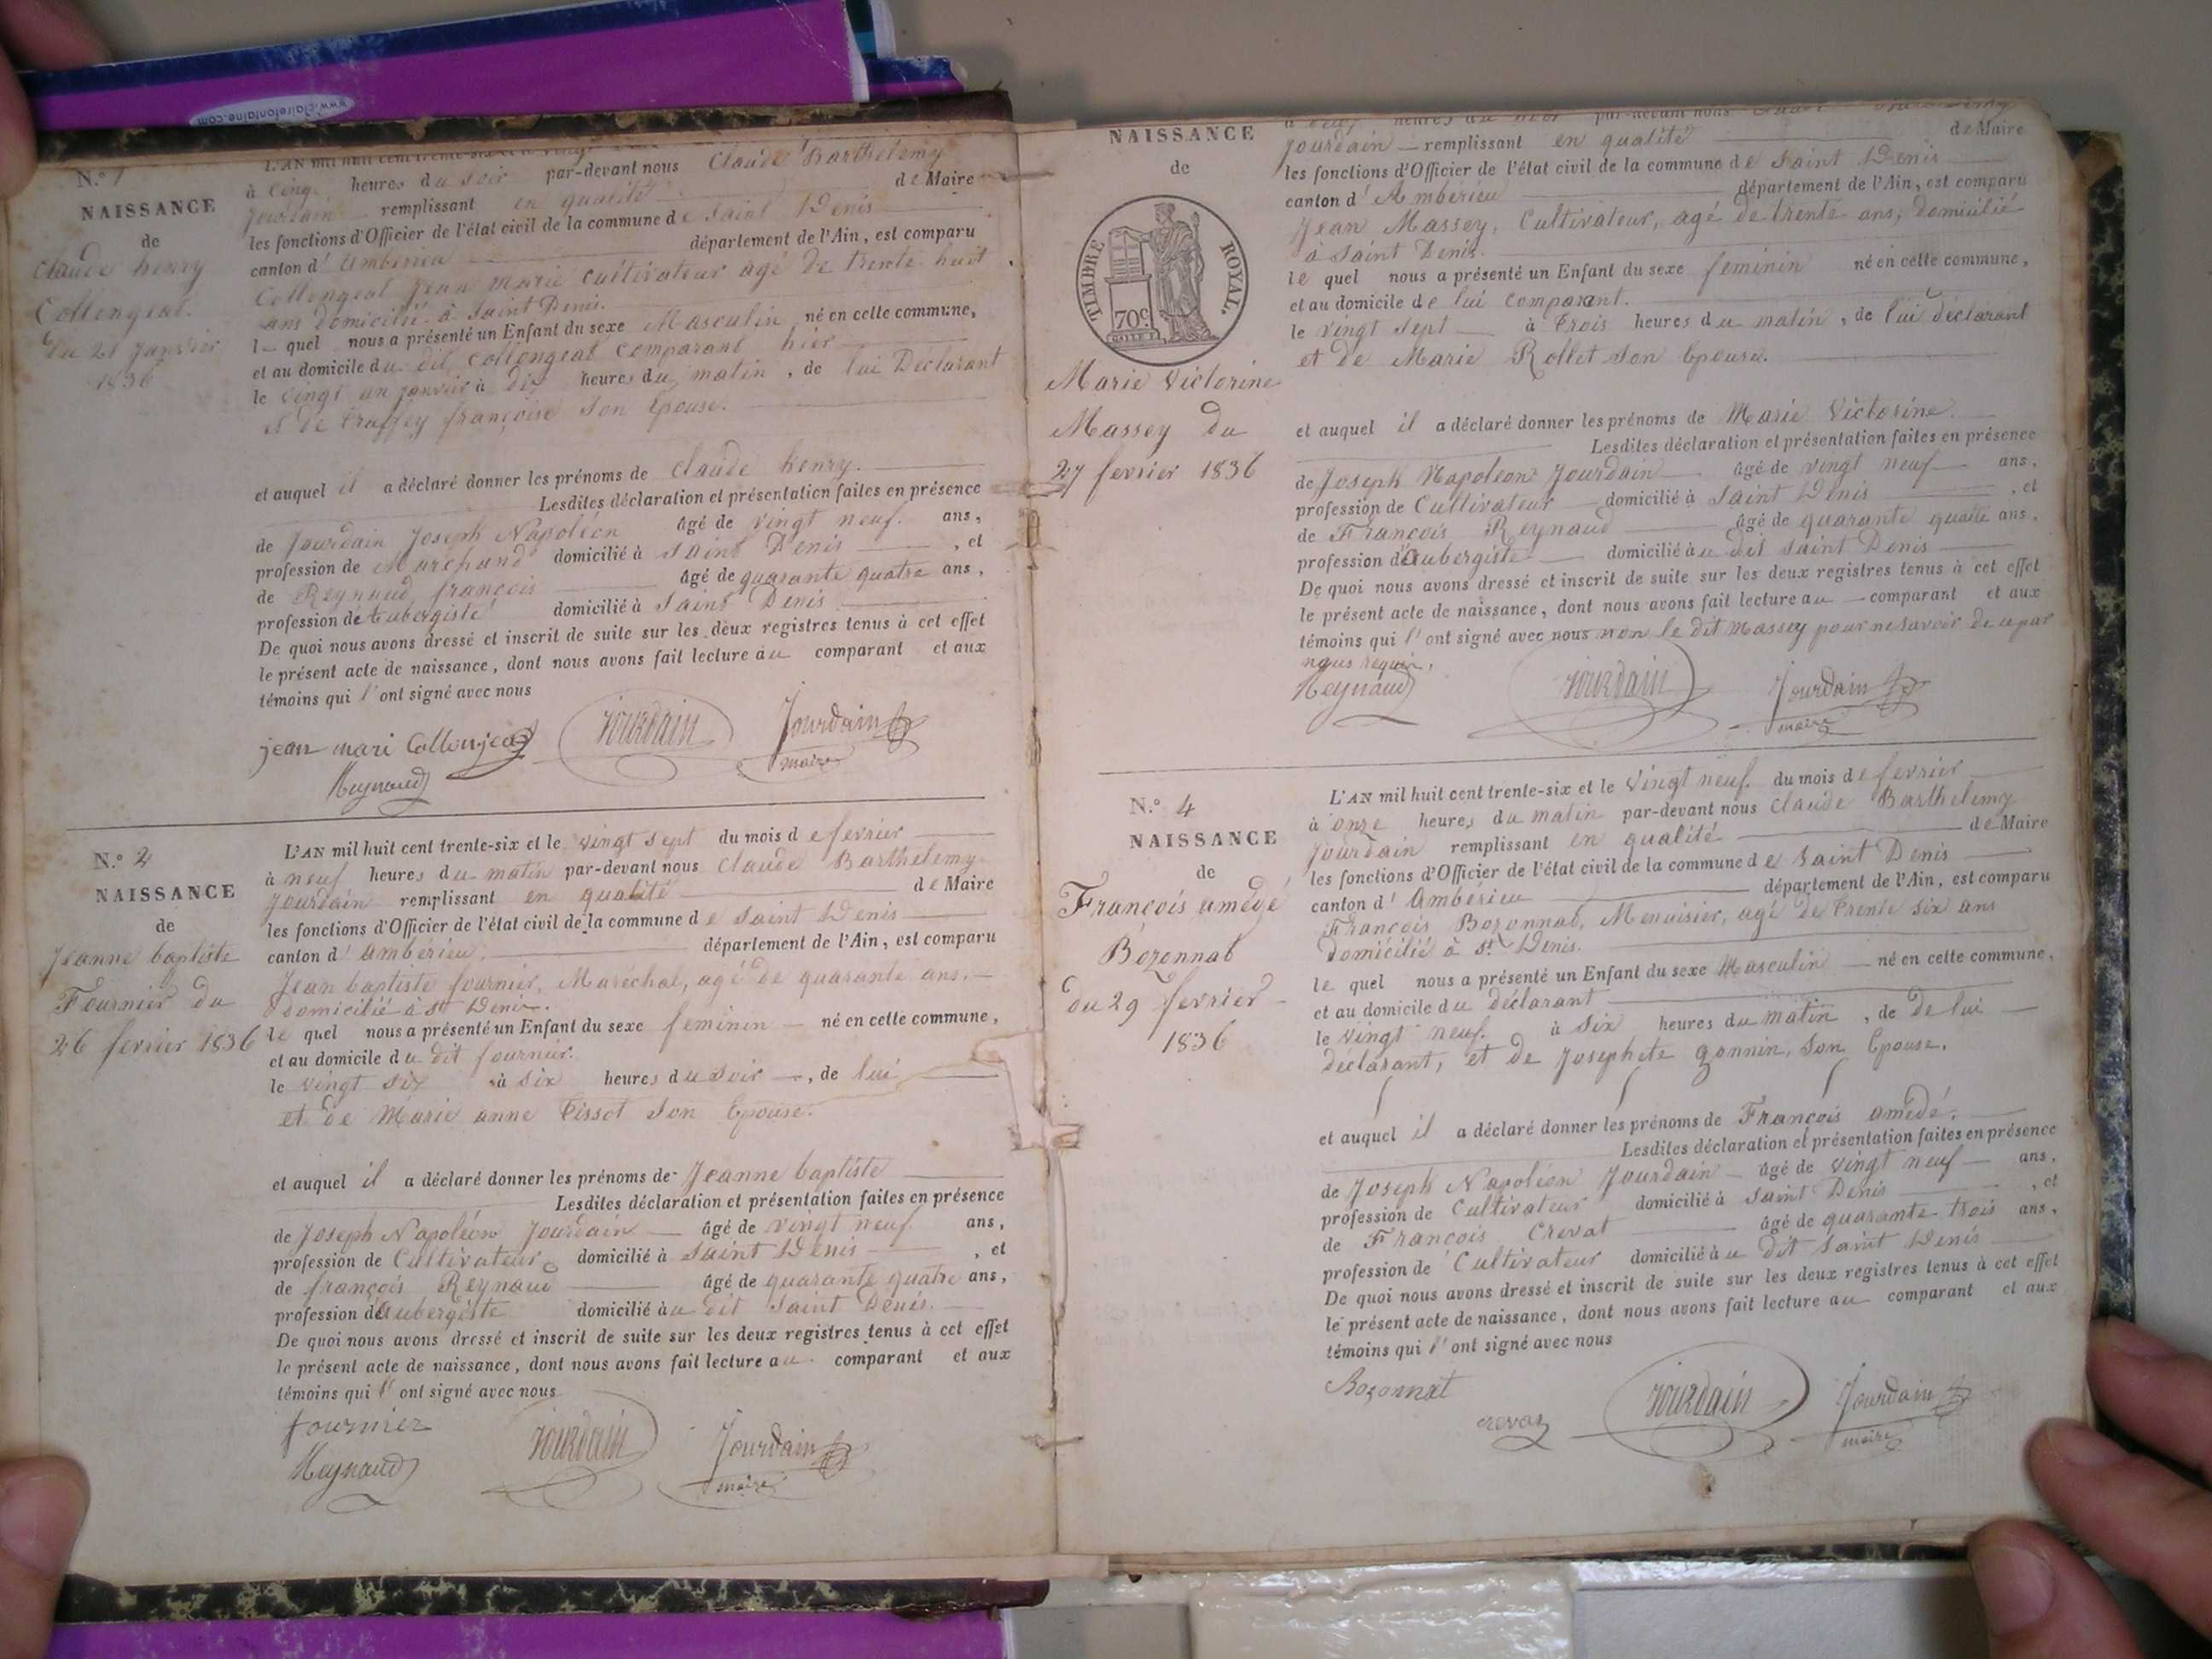 www.clairefontaine.com
N.º 1
NAISSANCE
de
Claude henry
Collongeat.
du 21 janvier
1836
L'AN mil huit cent trente-six et le vingt
à cinq heures du soir par-devant nous Claude Barthelemy
Jourdain remplissant en qualité de Maire
les fonctions d'Officier de l'état civil de la commune de Saint Denis
canton d' Ambérieu département de l'Ain, est comparu
Collongeat Jean Marie cultivateur agé de trente huit
ans domicilié à Saint Denis.
l quel nous a présenté un Enfant du sexe Masculin né en cette commune,
et au domicile du dit Collongeat comparant hier
le vingt un janvier à dix heures du matin, de lui Déclarant
et de Truffey françoise son Epouse.
et auquel il a déclaré donner les prénoms de Claude henry.
Lesdites déclaration et présentation faites en présence
de Jourdain Joseph Napoléon âgé de vingt neuf. ans,
profession de Marchand domicilié à Saint Denis, et
de Reynaud françois âgé de quarante quatre ans,
profession de aubergiste domicilié à Saint Denis
De quoi nous avons dressé et inscrit de suite sur les deux registres tenus à cet effet
le présent acte de naissance, dont nous avons fait lecture au comparant et aux
témoins qui l'ont signé avec nous
jean mari Collonjeat Jourdain Jourdain
maire
Reynaud
N.º 2
NAISSANCE
de
Jeanne baptiste
Fournier du
26 fevrier 1836
L'AN mil huit cent trente-six et le vingt sept du mois de fevrier
à neuf heures du matin par-devant nous Claude Barthelemy
Jourdain remplissant en qualité de Maire
les fonctions d'Officier de l'état civil de la commune de Saint Denis
canton d' ambérieu. département de l'Ain, est comparu
Jean baptiste fournier, Maréchal, agé de quarante ans,
domicilié à St Denis.
le quel nous a présenté un Enfant du sexe feminin né en cette commune,
et au domicile du dit fournier.
le vingt six à six heures du soir, de lui
et de Marie anne Tissot son Epouse.
et auquel il a déclaré donner les prénoms de Jeanne baptiste
Lesdites déclaration et présentation faites en présence
de Joseph Napoléon Jourdain âgé de vingt neuf. ans,
profession de Cultivateur domicilié à Saint Denis, et
de françois Reynaud âgé de quarante quatre ans,
profession d'aubergiste domicilié au dit Saint Denis.
De quoi nous avons dressé et inscrit de suite sur les deux registres tenus à cet effet
le présent acte de naissance, dont nous avons fait lecture au comparant et aux
témoins qui l'ont signé avec nous
fournier Jourdain Jourdain
Reynaud maire
NAISSANCE
de
TIMBRE ROYAL.
70c
Marie Victorine
Massey du
27 fevrier 1836
à heures du soir par-devant nous Claude Barthelemy
Jourdain remplissant en qualité de Maire
les fonctions d'Officier de l'état civil de la commune de Saint Denis
canton d' Ambérieu département de l'Ain, est comparu
Jean Massey, Cultivateur, agé de trente ans, domicilié
à Saint Denis.
le quel nous a présenté un Enfant du sexe feminin né en cette commune,
et au domicile de lui comparant.
le vingt sept à trois heures du matin, de lui déclarant
et de Marie Rollet son Epouse.
et auquel il a déclaré donner les prénoms de Marie Victorine.
Lesdites déclaration et présentation faites en présence
de Joseph Napoléon Jourdain âgé de vingt neuf ans,
profession de Cultivateur domicilié à Saint Denis, et
de François Reynaud âgé de quarante quatre ans,
profession d'aubergiste domicilié au dit Saint Denis
De quoi nous avons dressé et inscrit de suite sur les deux registres tenus à cet effet
le présent acte de naissance, dont nous avons fait lecture au comparant et aux
témoins qui l'ont signé avec nous non le dit Massey pour ne savoir de ce par
nous requis.
Reynaud Jourdain Jourdain
maire
N.º 4
NAISSANCE
de
François amédé
Bozonnat
du 29 fevrier
1836
L'AN mil huit cent trente-six et le vingt neuf. du mois de fevrier
à onze heures du matin par-devant nous Claude Barthelemy
Jourdain remplissant en qualité de Maire
les fonctions d'Officier de l'état civil de la commune de Saint Denis
canton d' Ambérieu département de l'Ain, est comparu
François Bozonnat, Menuisier, agé de trente six ans
domicilié à St Denis.
le quel nous a présenté un Enfant du sexe Masculin né en cette commune,
et au domicile du déclarant
le vingt neuf. à six heures du matin, de de lui
déclarant, et de Josephete gonnin, son Epouse.
et auquel il a déclaré donner les prénoms de François amédé.
Lesdites déclaration et présentation faites en présence
de Joseph Napoléon Jourdain âgé de vingt neuf ans,
profession de Cultivateur domicilié à Saint Denis, et
de François Crevat âgé de quarante trois ans,
profession de Cultivateur domicilié au dit Saint Denis
De quoi nous avons dressé et inscrit de suite sur les deux registres tenus à cet effet
le présent acte de naissance, dont nous avons fait lecture au comparant et aux
témoins qui l'ont signé avec nous
Bozonnat Jourdain Jourdain
crevat maire